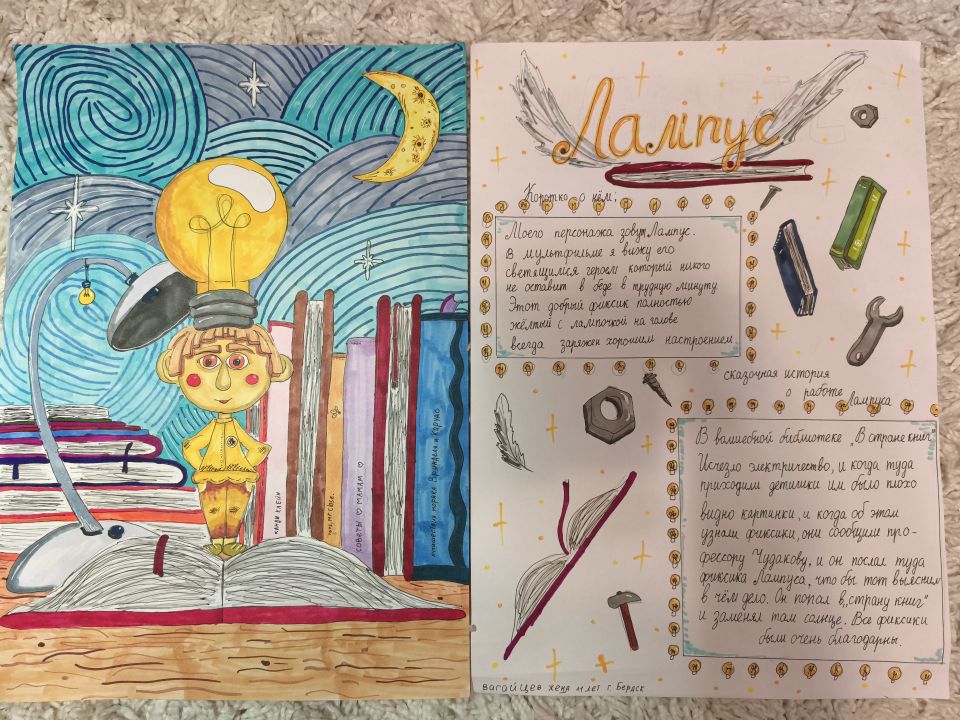 Лампус
Коротко о нём:
Моего персонажа зовут Лампус.
В мультфильме я вижу его
светящимся героем который никого
не оставит в беде в трудную минуту.
Этот добрый фиксик полностью
жёлтый с лампочкой на голове
всегда заряжен хорошим настроением
сказочная история
о работе Лампуса
В валшебной библиотеке „В стране книг"
Исчезло электричество, и когда туда
приходили детишки им было плохо
видно картинки, и когда об этом
узнали фиксики, они сообщили про-
фессору Чудакову, и он послал туда
фиксика Лампуса, что бы тот выяснил
в чём дело. Он попал в „страну книг"
и заменял там солнце. Все фиксики
были очень благодарны.
Вагайцев Женя 11 лет г. Бердск
советы мамам